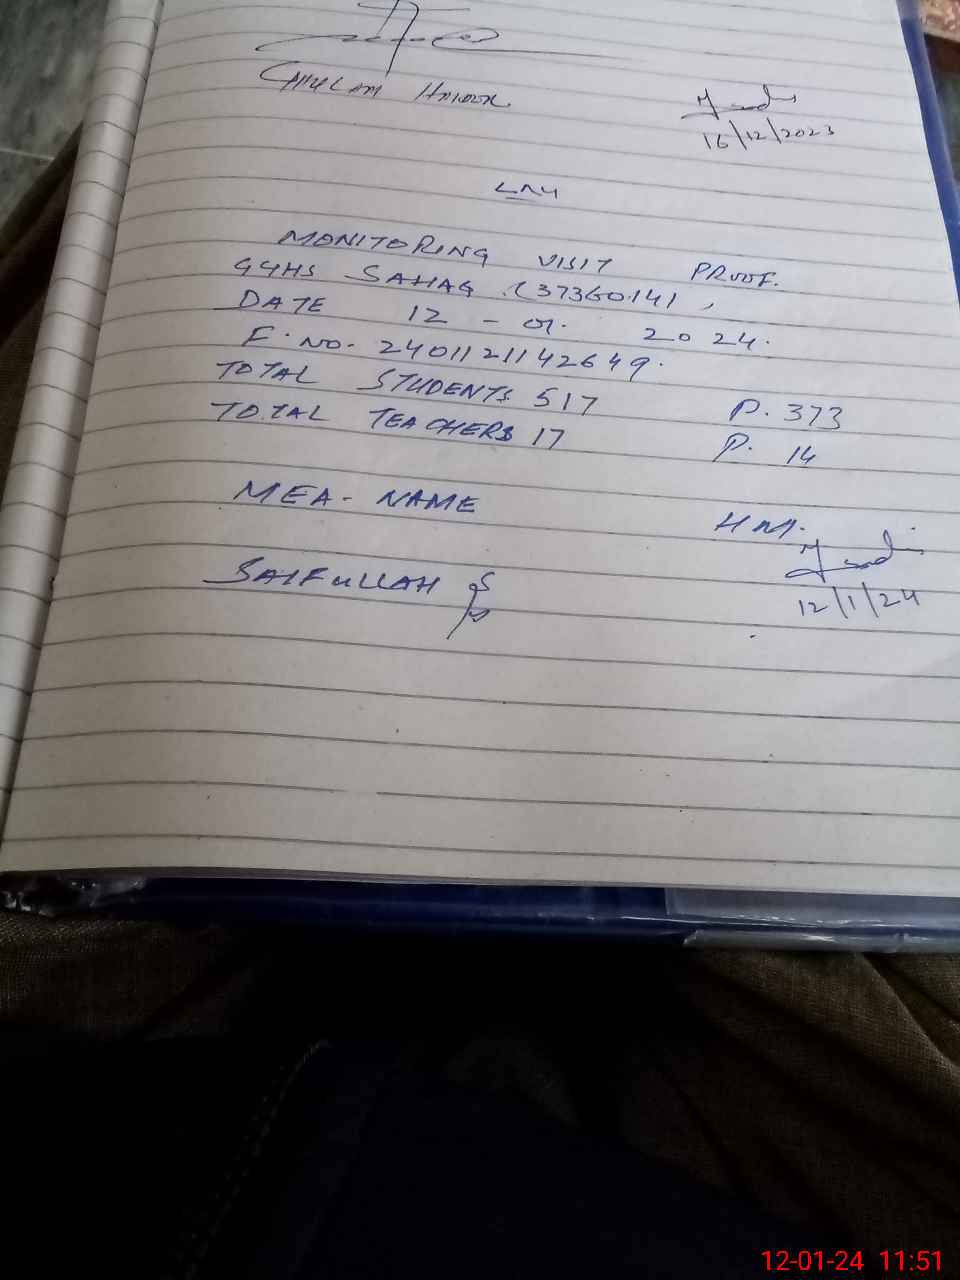 GHULAM HAIDER
16/12/2023
LND
MONITORING VISIT PROOF.
GGHS SAHAG (37360141,
DATE 12 - 01. 2024.
F. NO. 2401121142649.
TOTAL STUDENTS 517 P. 373
TOTAL TEACHERS 17 P. 14
MEA - NAME HM.
SAIFULLAH
12/1/24
12-01-24 11:51